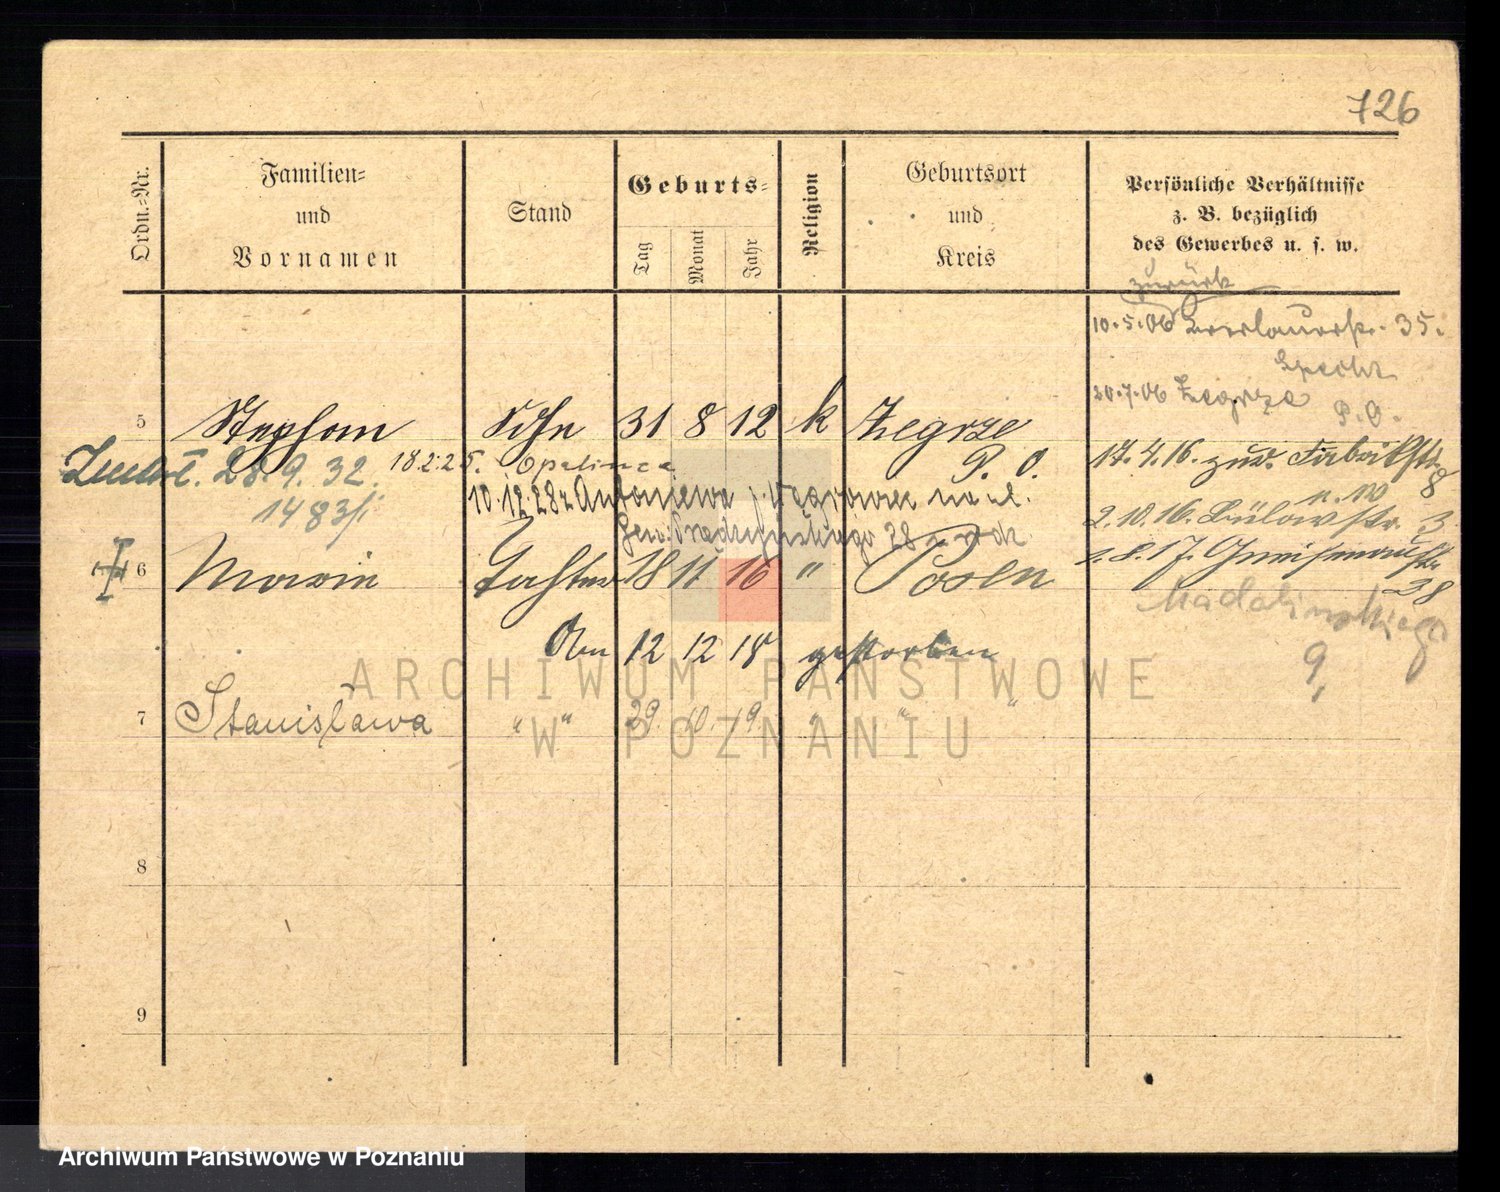 726
Ordn.-Nr.
Familien-
und
Vornamen
Stand
Geburts-
Tag
Monat
Jahr
Religion
Geburtsort
und
Kreis
Persönliche Verhältnisse
z. B. bezüglich
des Gewerbes u. s. w.
zurück
10.5.06 35.
20.7.06 Zegrze
P.O.
5 Stephan Sohn 31 8 12 k Zegrze
P. O.
17.4.16. zur. Fabrikstr.
8
28.9.32. 18.2.25. Opalenica
1483/
10.12.28 z Antoniewa
28
2.10.16. Bülowstr. 3
6 Marie Tochter 18 11 16 " Posen
8.17. Gneisenaustr.
38
Madalińskiego
9,
Am 12 12 18 gestorben
7 Stanisława " " 29. 10. 19. " " "
8
9
ARCHIWUM PAŃSTWOWE
W POZNANIU
Archiwum Państwowe w Poznaniu